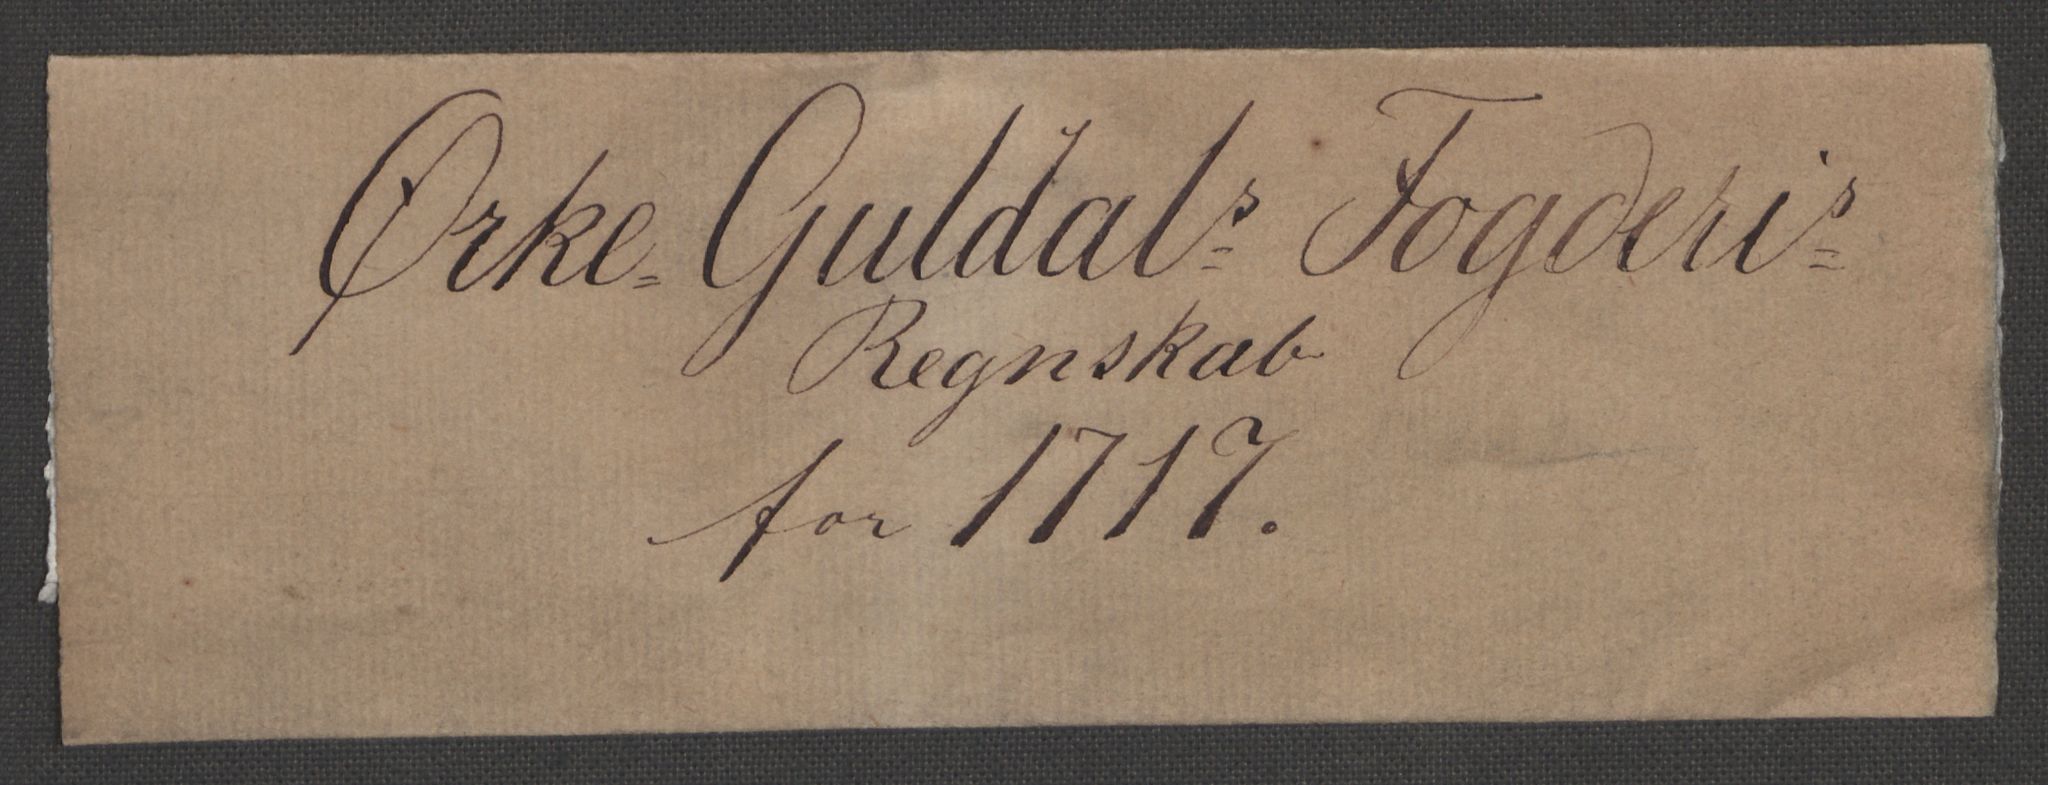 Ørke- Guldals Fogderis
Regnskab
for 1717.